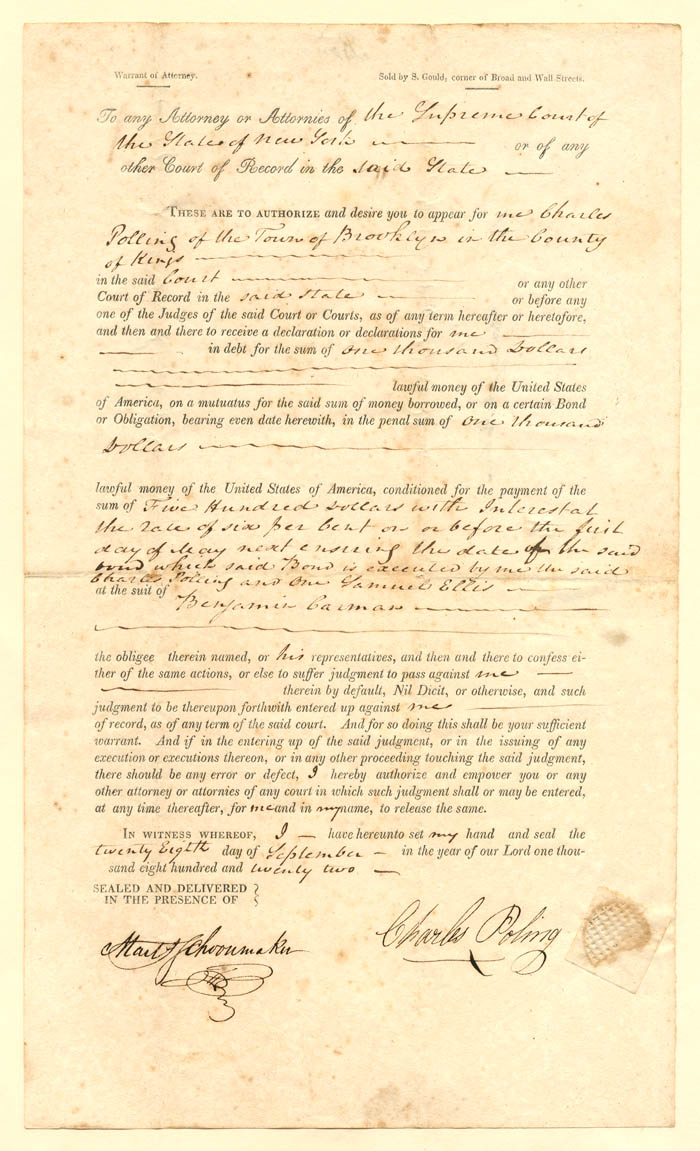 Warrant of Attorney.
Sold by S. Gould, corner of Broad and Wall Streets.
To any Attorney or Attornies of the Supreme Court of
the State of New York or of any
other Court of Record in the said State
THESE ARE TO AUTHORIZE and desire you to appear for me Charles
Polling of the Town of Brooklyn in the County
of Kings
in the said Court or any other
Court of Record in the said State or before any
one of the Judges of the said Court or Courts, as of any term hereafter or heretofore,
and then and there to receive a declaration or declarations for me
in debt for the sum of One thousand Dollars
lawful money of the United States
of America, on a mutuatus for the said sum of money borrowed, or on a certain Bond
or Obligation, bearing even date herewith, in the penal sum of One thousand
Dollars
lawful money of the United States of America, conditioned for the payment of the
sum of Five Hundred Dollars with Interest at
the rate of six per Cent on or before the first
day of May next ensuing the date of the said
bond which said Bond is executed by me the said
Charles Polling and One Samuel Ellis
at the suit of Benjamin Carman
the obligee therein named, or his representatives, and then and there to confess ei-
ther of the same actions, or else to suffer judgment to pass against me
therein by default, Nil Dicit, or otherwise, and such
judgment to be thereupon forthwith entered up against me
of record, as of any term of the said court. And for so doing this shall be your sufficient
warrant. And if in the entering up of the said judgment, or in the issuing of any
execution or executions thereon, or in any other proceeding touching the said judgment,
there should be any error or defect, I hereby authorize and empower you or any
other attorney or attornies of any court in which such judgment shall or may be entered,
at any time thereafter, for me and in my name, to release the same.
IN WITNESS WHEREOF, I have hereunto set my hand and seal the
twenty Eighth day of September in the year of our Lord one thou-
sand eight hundred and twenty two
SEALED AND DELIVERED
IN THE PRESENCE OF
Charles Poling
Schoonmaker